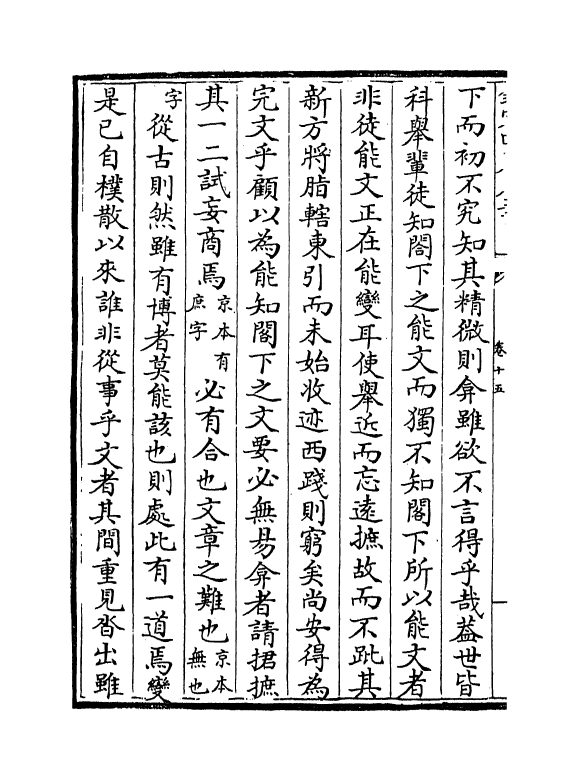 下而初不究知其精微則弇雖欲不言得乎哉葢世皆
科舉軰徒知閤下之能文而獨不知閤下所以能文者
非徒能文正在能變耳使舉近而忘逺摭故而不跐其
新方將脂轄東引而未始收迹西踐則窮矣尚安得為
完文乎顧以為能知閤下之文要必無易弇者請捃摭
其一二試妄商焉京本有庶字必有合也文章之難也京本無也
字從古則然雖有博者莫能該也則處此有一道焉變
是已自樸散以來誰非從事乎文者其間重見沓出雖
卷十五